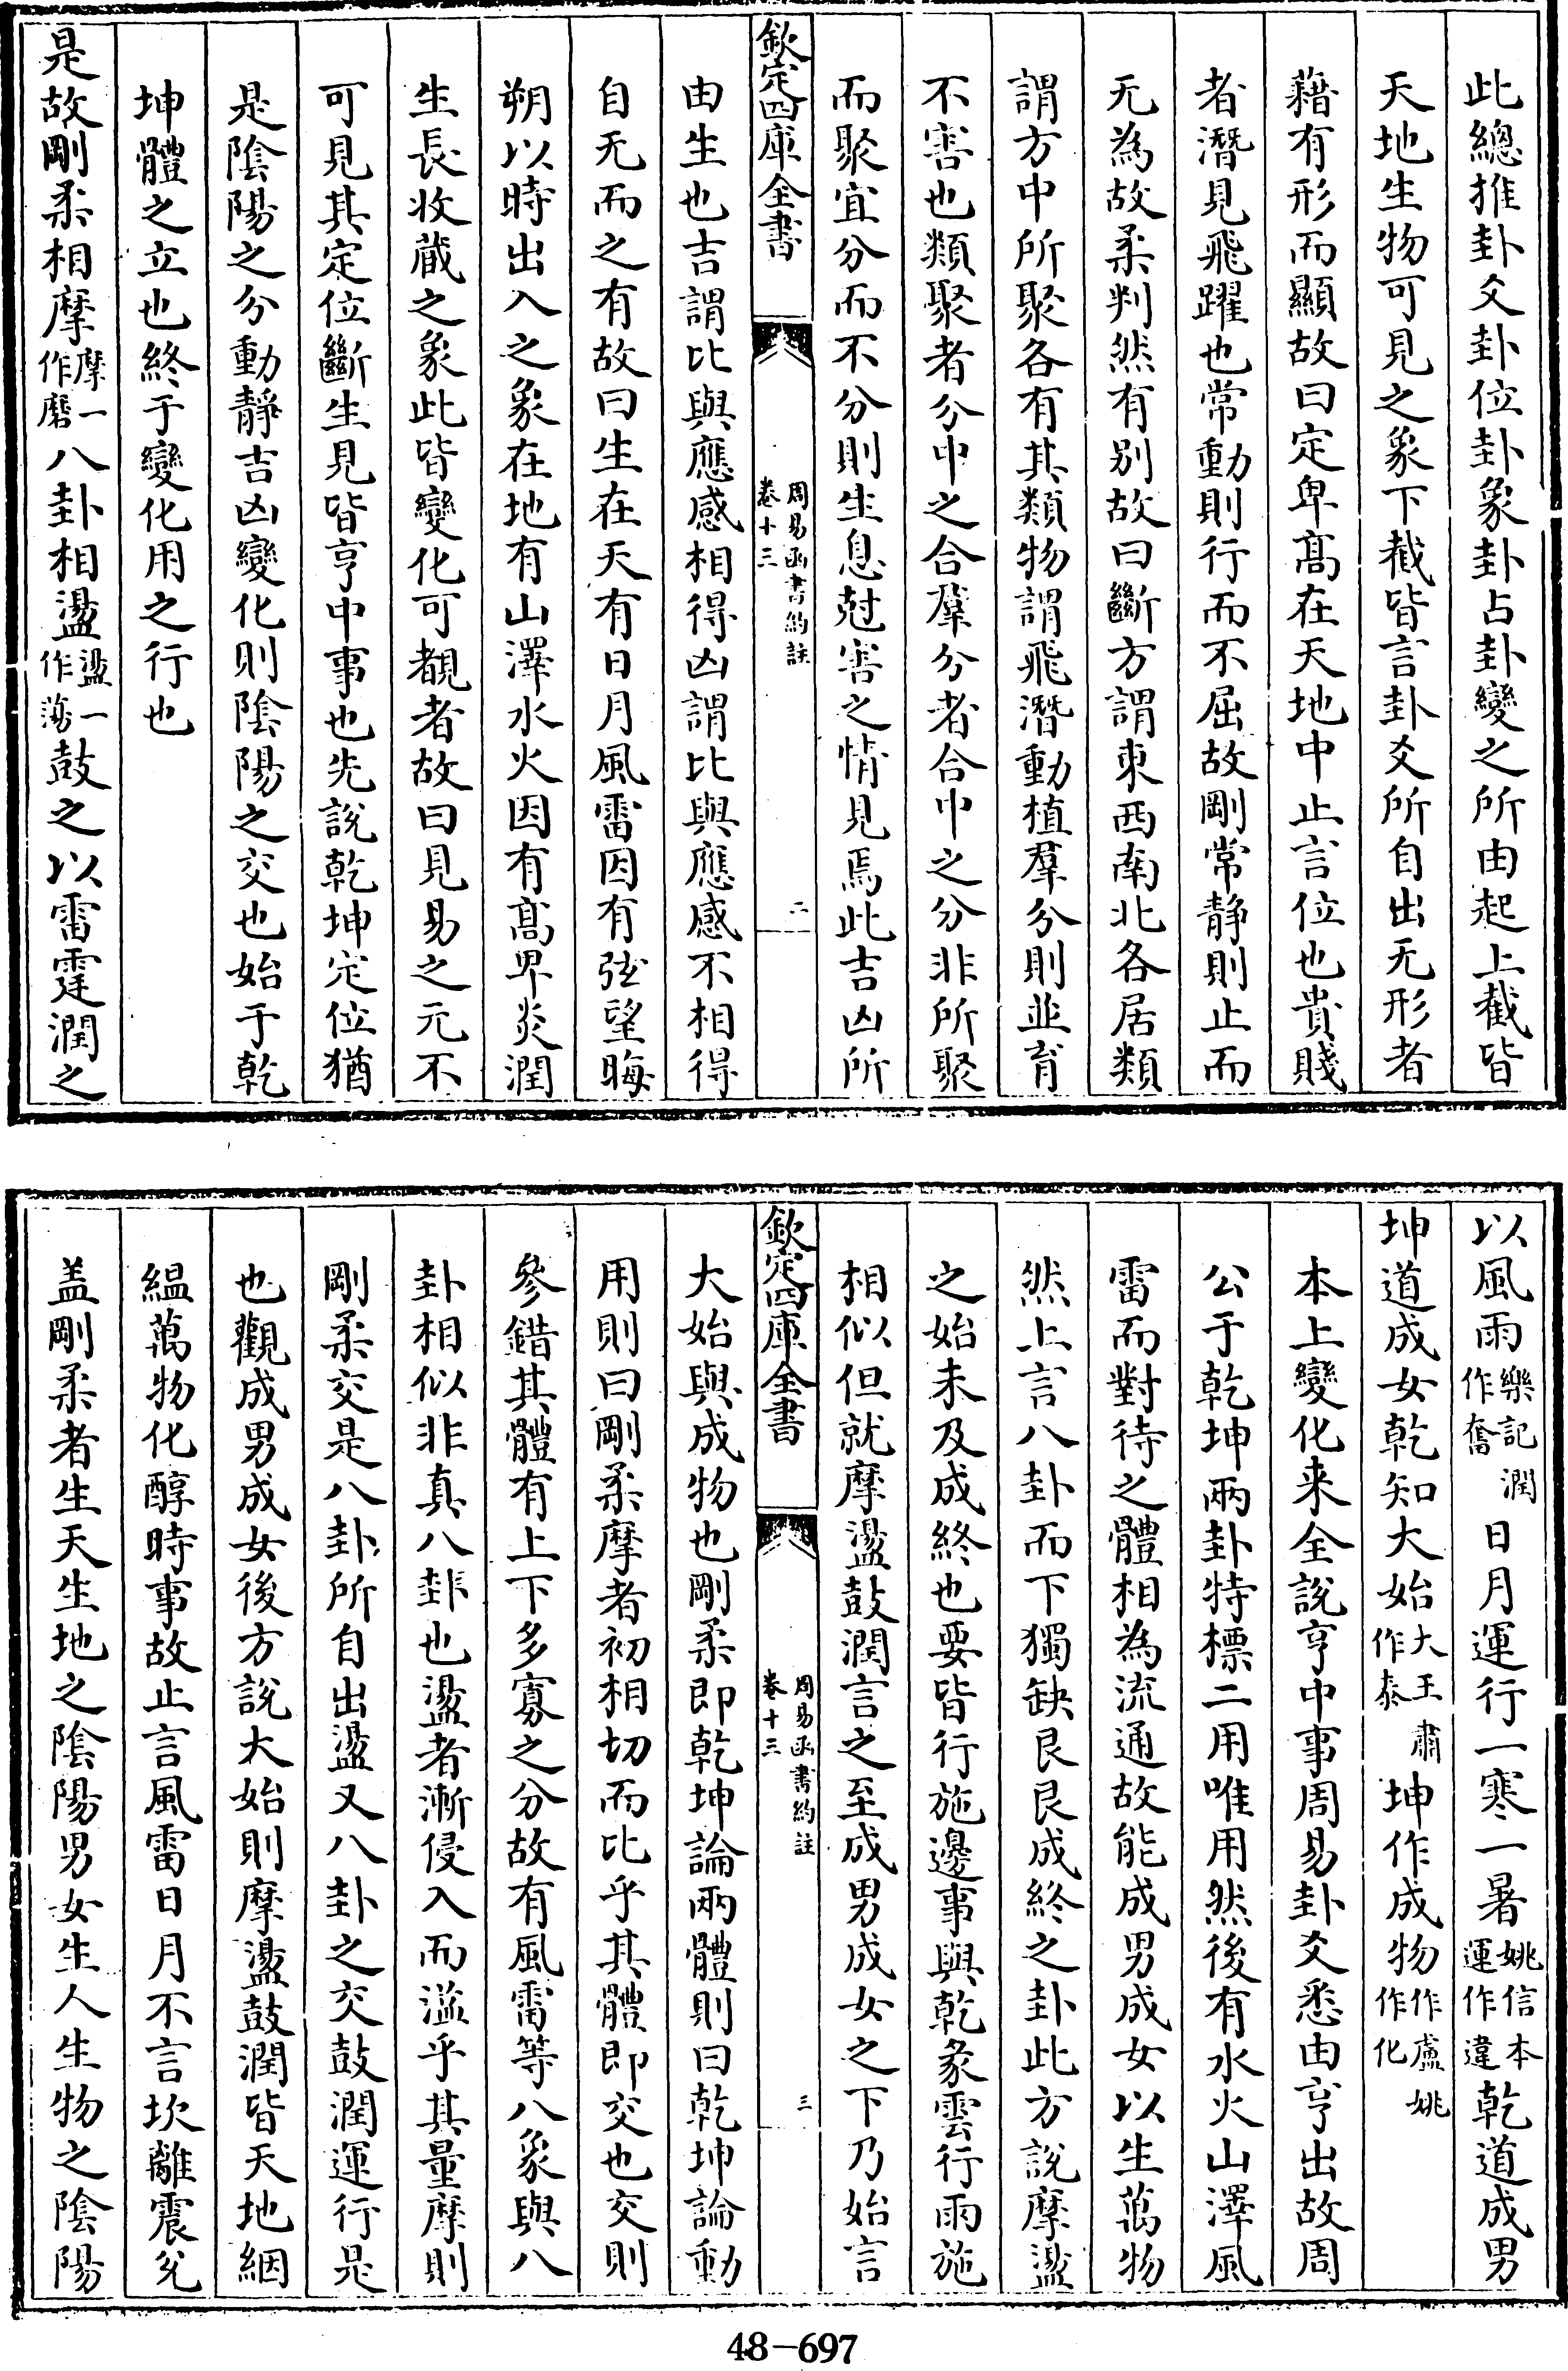 此總推卦爻卦位卦象卦占卦變之所由起上截皆
天地生物可見之象下截皆言卦爻所自出无形者
藉有形而顯故曰定卑髙在天地中止言位也貴賤
者潛見飛躍也常動則行而不屈故剛常静則止而
无為故柔判然有别故曰斷方謂東西南北各居類
謂方中所聚各有其類物謂飛潛動植羣分則並育
不害也類聚者分中之合羣分者合中之分非所聚
而聚宜分而不分則生息尅害之情見焉此吉凶所
欽定四庫全書
周易函書約註
卷十三
二
由生也吉謂比與應感相得凶謂比與應感不相得
自无而之有故曰生在天有日月風雷因有弦望晦
朔以時出入之象在地有山澤水火因有髙卑炎潤
生長收蔵之象此皆變化可覩者故曰見易之元不
可見其定位斷生見皆亨中事也先說乾坤定位猶
是陰陽之分動静吉凶變化則陰陽之交也始于乾
坤體之立也終于變化用之行也
是故剛柔相摩摩一作磨八卦相盪盪一作蕩鼓之以雷霆潤之
以風雨樂記潤作奮日月運行一寒一暑姚信本運作違乾道成男
坤道成女乾知大始大王肅作泰坤作成物作盧姚作化
本上變化来全說亨中事周易卦爻悉由亨出故周
公于乾坤兩卦特標二用唯用然後有水火山澤風
雷而對待之體相為流通故能成男成女以生萬物
然上言八卦而下獨缺艮艮成終之卦此方說摩盪
之始未及成終也要皆行施邊事與乾彖雲行雨施
相似但就摩盪鼓潤言之至成男成女之下乃始言
欽定四庫全書
周易函書約註
卷十三
三
大始與成物也剛柔即乾坤論兩體則曰乾坤論動
用則曰剛柔摩者初相切而比乎其體即交也交則
參錯其體有上下多寡之分故有風雷等八象與八
卦相似非真八卦也盪者漸侵入而滥乎其量摩則
剛柔交是八卦所自出盪又八卦之交鼓潤運行是
也觀成男成女後方說大始則摩盪鼓潤皆天地絪
緼萬物化醇時事故止言風雷日月不言坎離震兊
盖剛柔者生天生地之陰陽男女生人生物之陰陽
48-697